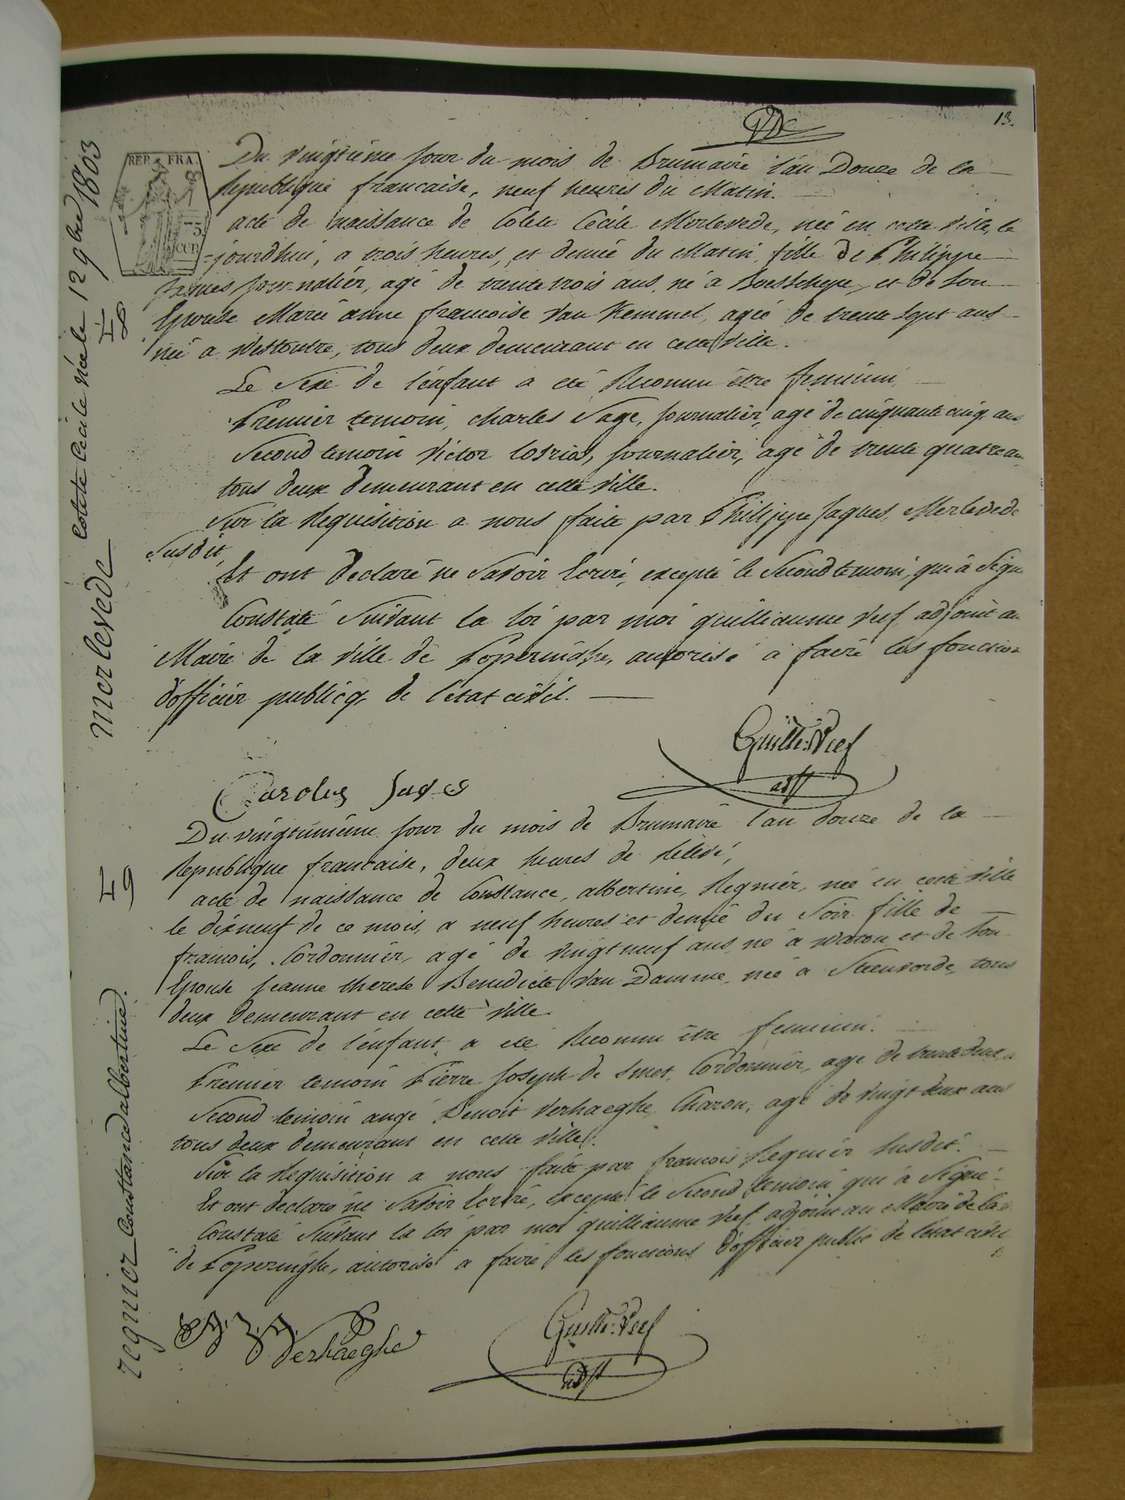 13.
REP. FRA.
75
CUP
Du vingtiéme jour du mois de Brumaire l'an Douze de la
Republique francaise, neuf heures du Matin.
acte de naissance de Colete Cécile Merlevede, née en cette ville, le
jourdhui, a trois heures, et demié du Matin, fille de Philippe
Jaques journaliér, agé de trente trois ans, né a Boesschepe, et de son
Epouse Marie anne francoise Van Kemmel, agée de trente sept ans
née a Westoutre, tous deux demeurant en cette ville.
Le Sexe de l'enfant a été Reconnu être feminin.
Premier temoin, charles Sage, journaliér, agé de cinquante cinq ans
Second temoin Victor, journaliér, agé de trente quatre ans
tous deux demeurant en cette ville.
Sur la Requisition a nous faite par Philippe Jaques Merlevede
susdit,
Et ont declaré ne Savoir Ecrire, excepté le Second temoin, qui à Signé
Constaté Suivant la loi par moi guilliaume Vief adjoint au
Maire de la ville de Poperinghe, autorisé a faire les fonctions
d'officier publicq de l'état civil.
Guille. Vief
adjt
Carolus Sages
Merlevede Colete Cecile née le 12 9bre 1803
48
Du vingtuniéme jour du mois de Brumaire l'an douze de la
Republique francaise, deux heures de Relevé,
acte de naissance de Constance, albertine, Regniér, née en cette ville
le dixneuf de ce mois, a neuf heures et demiée du Soir fille de
francois, Cordonniér, agé de vingt neuf ans, né a Watou et de Son
Epouse Jeanne therese Benedicte Van Damme, née à Steenvorde, tous
deux demeurant en cette ville
Le Sexe de l'enfant a été Reconnu être feminin.
Premier temoin Pierre Joseph de Smet, Cordonniér, agé de
Second temoin ange Benoit Verhaeghe, Charon, agé de vingt deux ans
tous deux demeurant en cette ville.
Sur la Requisition a nous faite par francois Regniér Susdit.
Et ont declaré ne Savoir Ecrire, excepté le Second temoin qui à Signé.
Constaté Suivant la loi par moi guilliaume Vief adjoint au Maire de la
de Poperinghe, autorisé a faire les fonctions d'officier public de l'état civil
Verhaeghe
Guille. Vief
adjt
regnier Constance albertine.
49